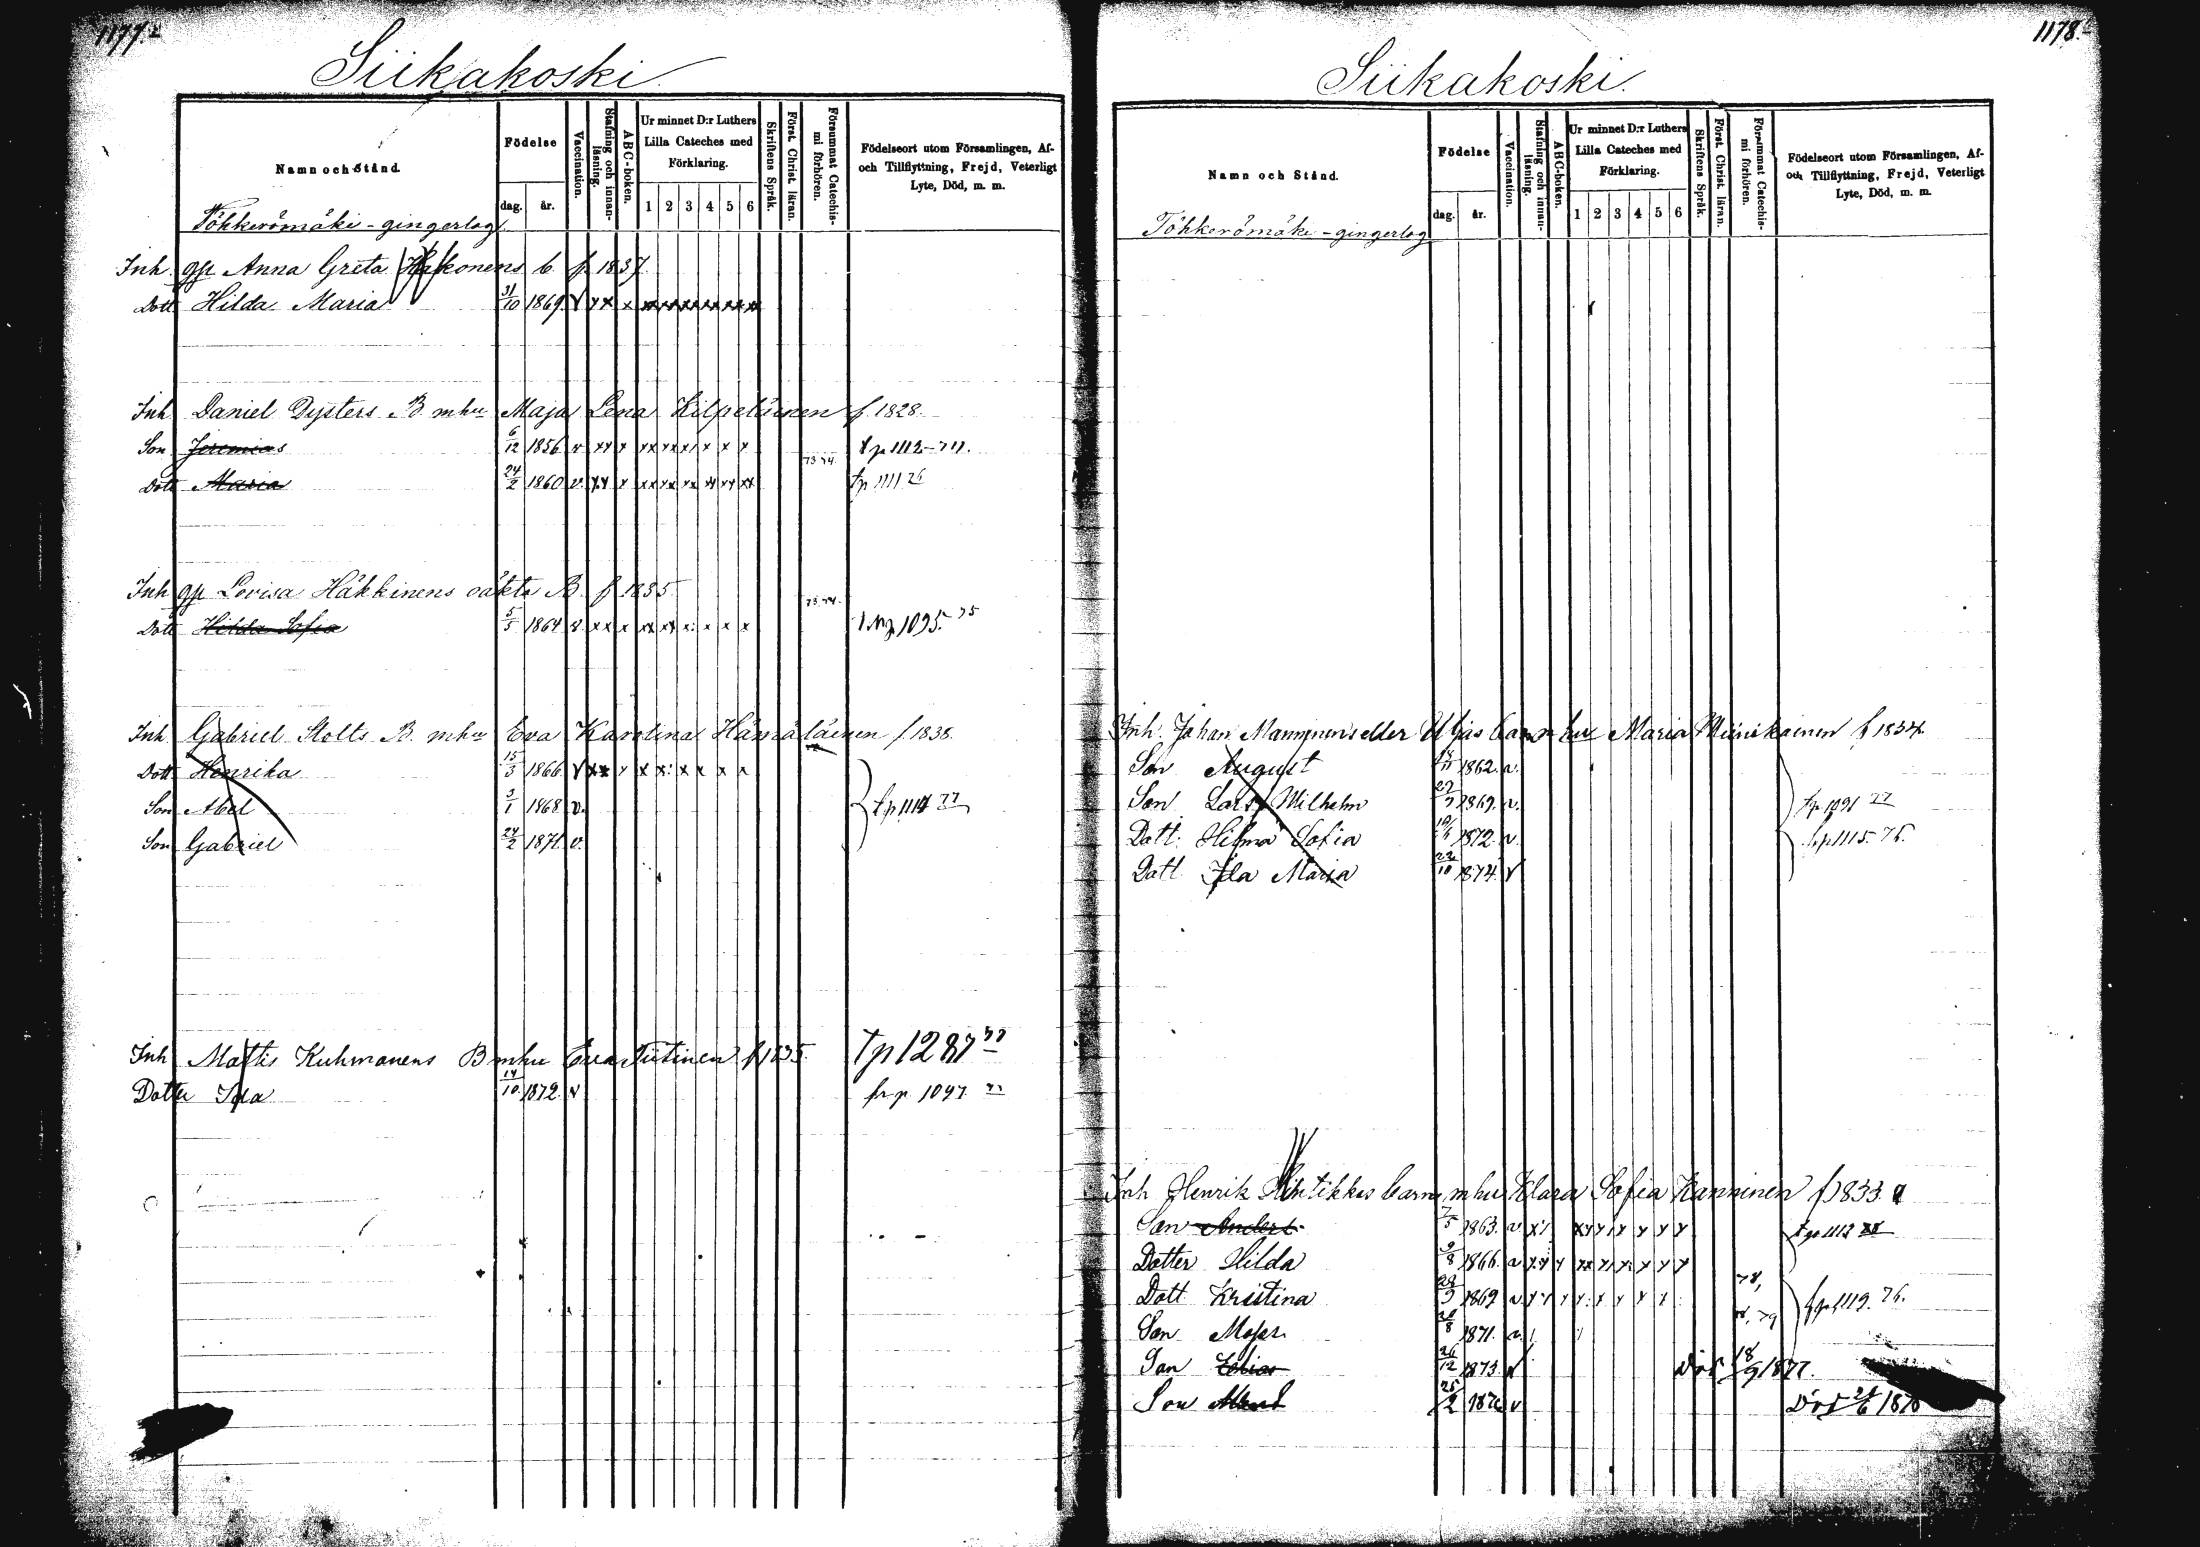 1177.
Siikakoski
Namn och Stånd.
Födelse
dag. år.
Vaccination.
Stafning och innanläsning.
ABC-boken.
Ur minnet D:r Luthers Lilla Cateches med Förklaring.
1 2 3 4 5 6
Skriftens Språk.
Först. Christ. läran.
Försummat Catechismi förhören.
Födelseort utom Församlingen, Af- och Tillflyttning, Frejd, Veterligt Lyte, Död, m. m.
Töhkerömäki-gingerlag
Inh. gp Anna Greta b. f. 1837
Dott. Hilda Maria 31/10 1869. v x x x
Inh Daniel Dysters B mhu Maja Lena Kilpeläinen f 1828.
Son Jeremias 6/12 1856 v tp 1112
73 74.
Dott Maria 24/2 1860 v. tp 1111 76
Inh gp Lovisa Häkkinens oäkta B. f 1835
73 74.
Dott Hilda Sofia 5/5 1864 v. 1095. 75
Inh Gabriel Stolts B. mhu Eva Karolina Hämäläinen f 1838.
Dott. Henrika 15/3 1866 v
Son Abel 3/1 1868 v. tp 1114 77
Son Gabriel 24/2 1871. v.
Inh Mattis Kuhmonens B mhu Eva Tiitinen f 1835. tp 1287
Dotter Ida 14/10 1872. v fr p. 1097.
1178.
Siikakoski.
Namn och Stånd.
Födelse
dag. år.
Vaccination.
Stafning och innanläsning.
ABC-boken.
Ur minnet D:r Luthers Lilla Cateches med Förklaring.
1 2 3 4 5 6
Skriftens Språk.
Först. Christ. läran.
Försummat Catechismi förhören.
Födelseort utom Församlingen, Af- och Tillflyttning, Frejd, Veterligt Lyte, Död, m. m.
Töhkerömäki-gingerlag
Inh. Johan Manninens eller Uljas barn mhu Maria Miinikainen f 1834.
Son August 1862. v.
Son Lars Wilhelm 1869. v. tp 1091 77
Dott. Hilma Sofia 1872. v. fr p 1115. 76.
Dott. Ida Maria 22/10 1874. v
Inh Henrik Hintikkas barn mhu Klara Sofia Kanninen f 1833.
Son Anders 7/5 1863. v tp 1112
Dotter Hilda 9/8 1866. v
Dott Kristina 1869 v 78, fr p 1119. 76.
Son Moses 1871. v 79
Son Tobias 26/12 1873. v Död 18/9 1877.
Son 25/2 1876 v Död